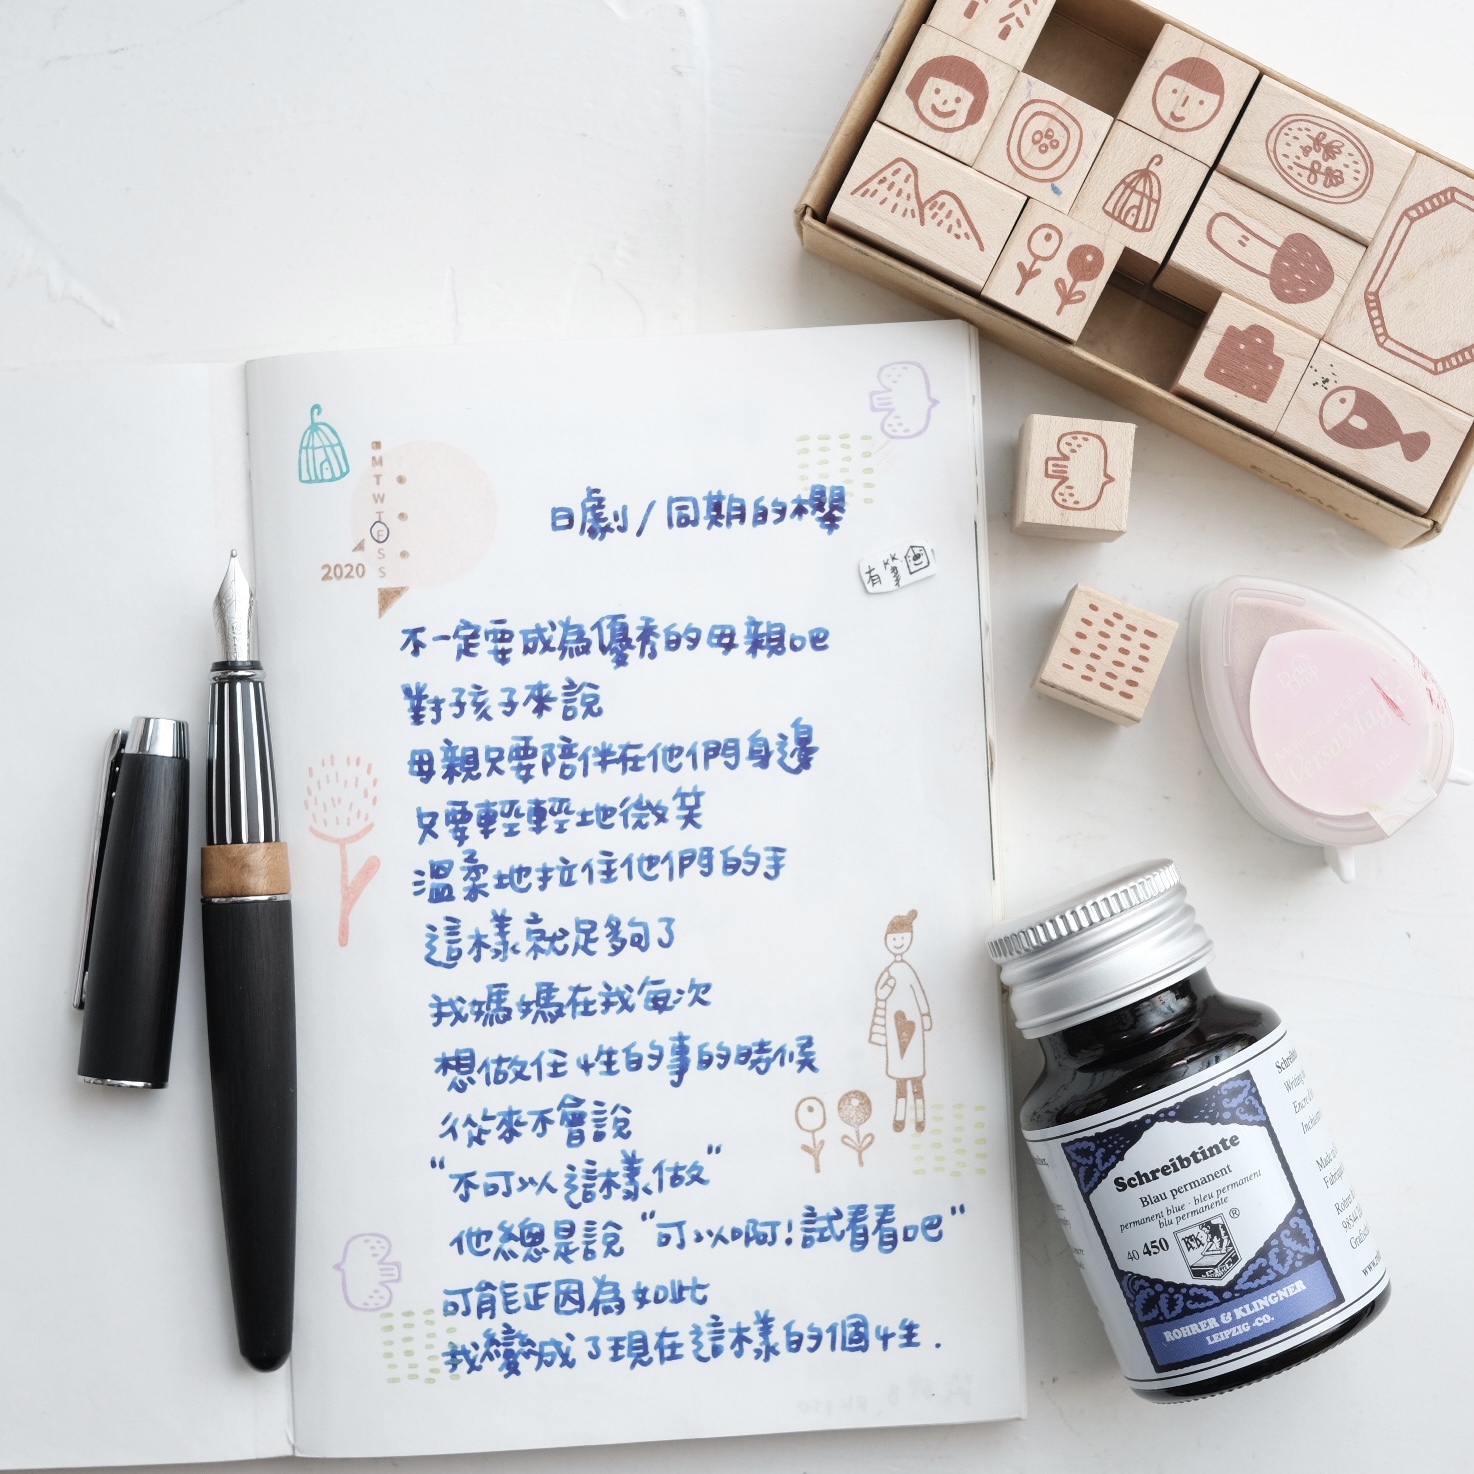 M
T
W
T
F
S
S
2020
日劇/同期的櫻
有KK
不一定要成為優秀的母親吧
對孩子來說
母親只要陪伴在他們身邊
只要輕輕地微笑
溫柔地拉住他們的手
這樣就足夠了
我媽媽在我每次
想做任性的事的時候
從來不會說
“不可以這樣做”
他總是說“可以啊!試看看吧”
可能正因為如此
我變成了現在這樣的個性.
VersaMagic
Schreibtinte
Blau permanent
permanent blue · bleu permanent
blu permanente
40 450
®
ROHRER & KLINGNER
LEIPZIG-CO.